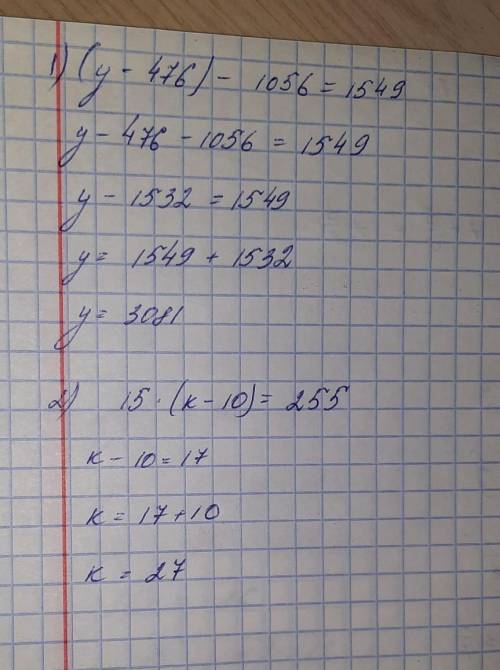 1) (y - 476) - 1056 = 1549
y - 476 - 1056 = 1549
y - 1532 = 1549
y = 1549 + 1532
y = 3081
2) 15 · (к - 10) = 255
к - 10 = 17
к = 17 + 10
к = 27